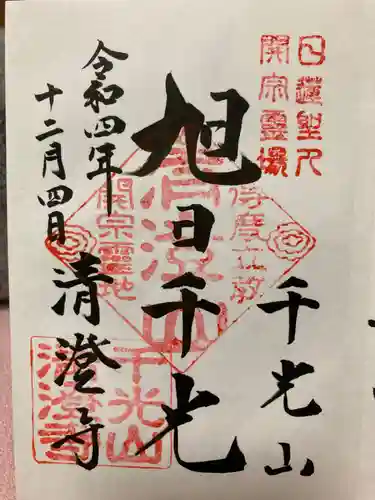 日蓮聖人
開宗霊場
千光山
旭日千光
清澄山
開宗霊地
令和四年
十二月四日
清澄寺
千光山
清澄寺